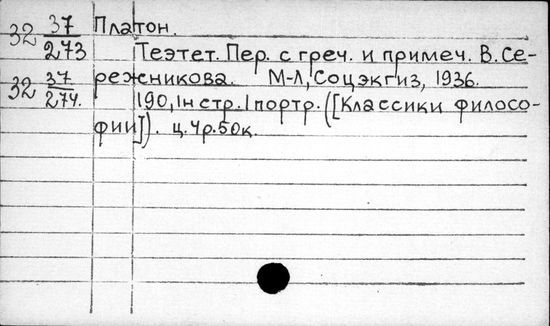 32 37/273 Платон.
Теэтет. Пер. с греч. и примеч. В. Се-
32 37/274. режникова. М-Л, Соцэкгиз, 1936.
190, 1н стр. 1 портр. ([Классики филосо-
фии]). ц. 4р. 50к.